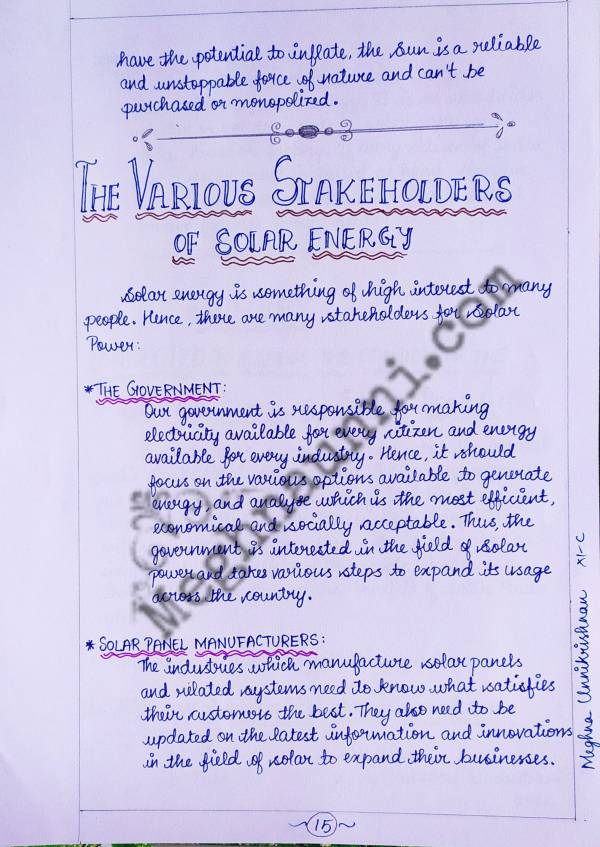 have the potential to inflate, the Sun is a reliable
and unstoppable force of nature and can't be
purchased or monopolized.
THE VARIOUS STAKEHOLDERS
OF SOLAR ENERGY
Solar energy is something of high interest to many
people. Hence, there are many stakeholders for Solar
Power:
* THE GOVERNMENT:
Our government is responsible for making
electricity available for every citizen and energy
available for every industry. Hence, it should
focus on the various options available to generate
energy, and analyse which is the most efficient,
economical and socially acceptable. Thus, the
government is interested in the field of solar
power and takes various steps to expand its usage
across the country.
* SOLAR PANEL MANUFACTURERS:
The industries which manufacture solar panels
and related systems need to know what satisfies
their customers the best. They also need to be
updated on the latest information and innovations
in the field of solar to expand their businesses.
15
Meghna Unnikrishnan XI-C
Meghnaunni.com